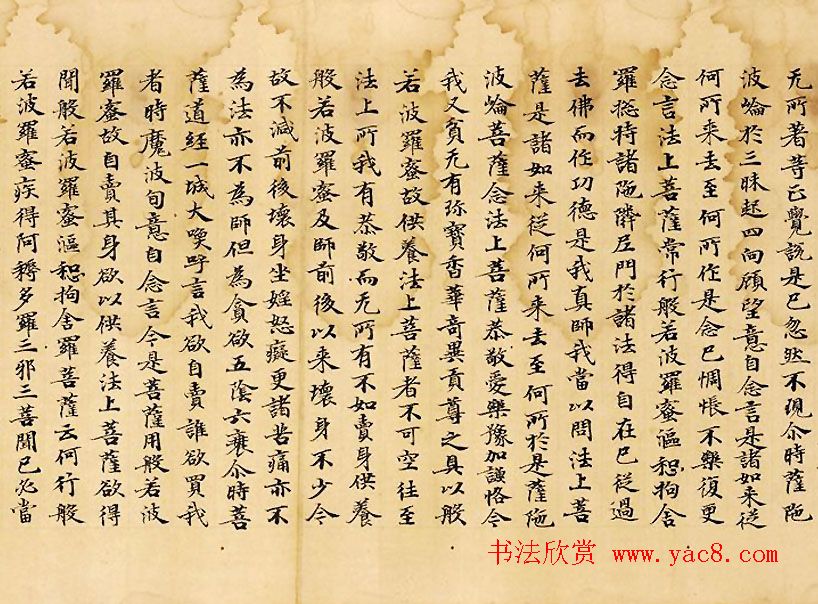 无所著等正覺說是已忽然不現尒時薩陁
波崘於三昧起四向顧望意自念言是諸如来從
何所来去至何所作是念已惆悵不樂復更
念言法上菩薩常行般若波羅蜜漚惒拘舍
羅捴持諸陁隣尼門於諸法得自在已從過
去佛而作功德是我真師我當以問法上菩
薩是諸如来從何所来去至何所於是薩陁
波崘菩薩念法上菩薩恭敬愛樂豫加謙恪今
我又貧无有弥寶香華奇異貢尊之具以般
若波羅蜜故供養法上菩薩者不可空往至
法上所我有恭敬而无所有不如賣身供養
般若波羅蜜及師前後以来壞身不少今
故不減前後壞身坐婬怒癡更諸苦痛亦不
為法亦不為師但為貪欲五陰六衰尒時菩
薩道經一城大喚呼言我欲自賣誰欲買我
者時魔波旬意自念言今是菩薩用般若波
羅蜜故自賣其身欲以供養法上菩薩欲得
聞般若波羅蜜漚惒拘舍羅菩薩云何行般
若波羅蜜疾得阿耨多羅三邪三菩聞已必當
书法欣赏 www.yac8.com